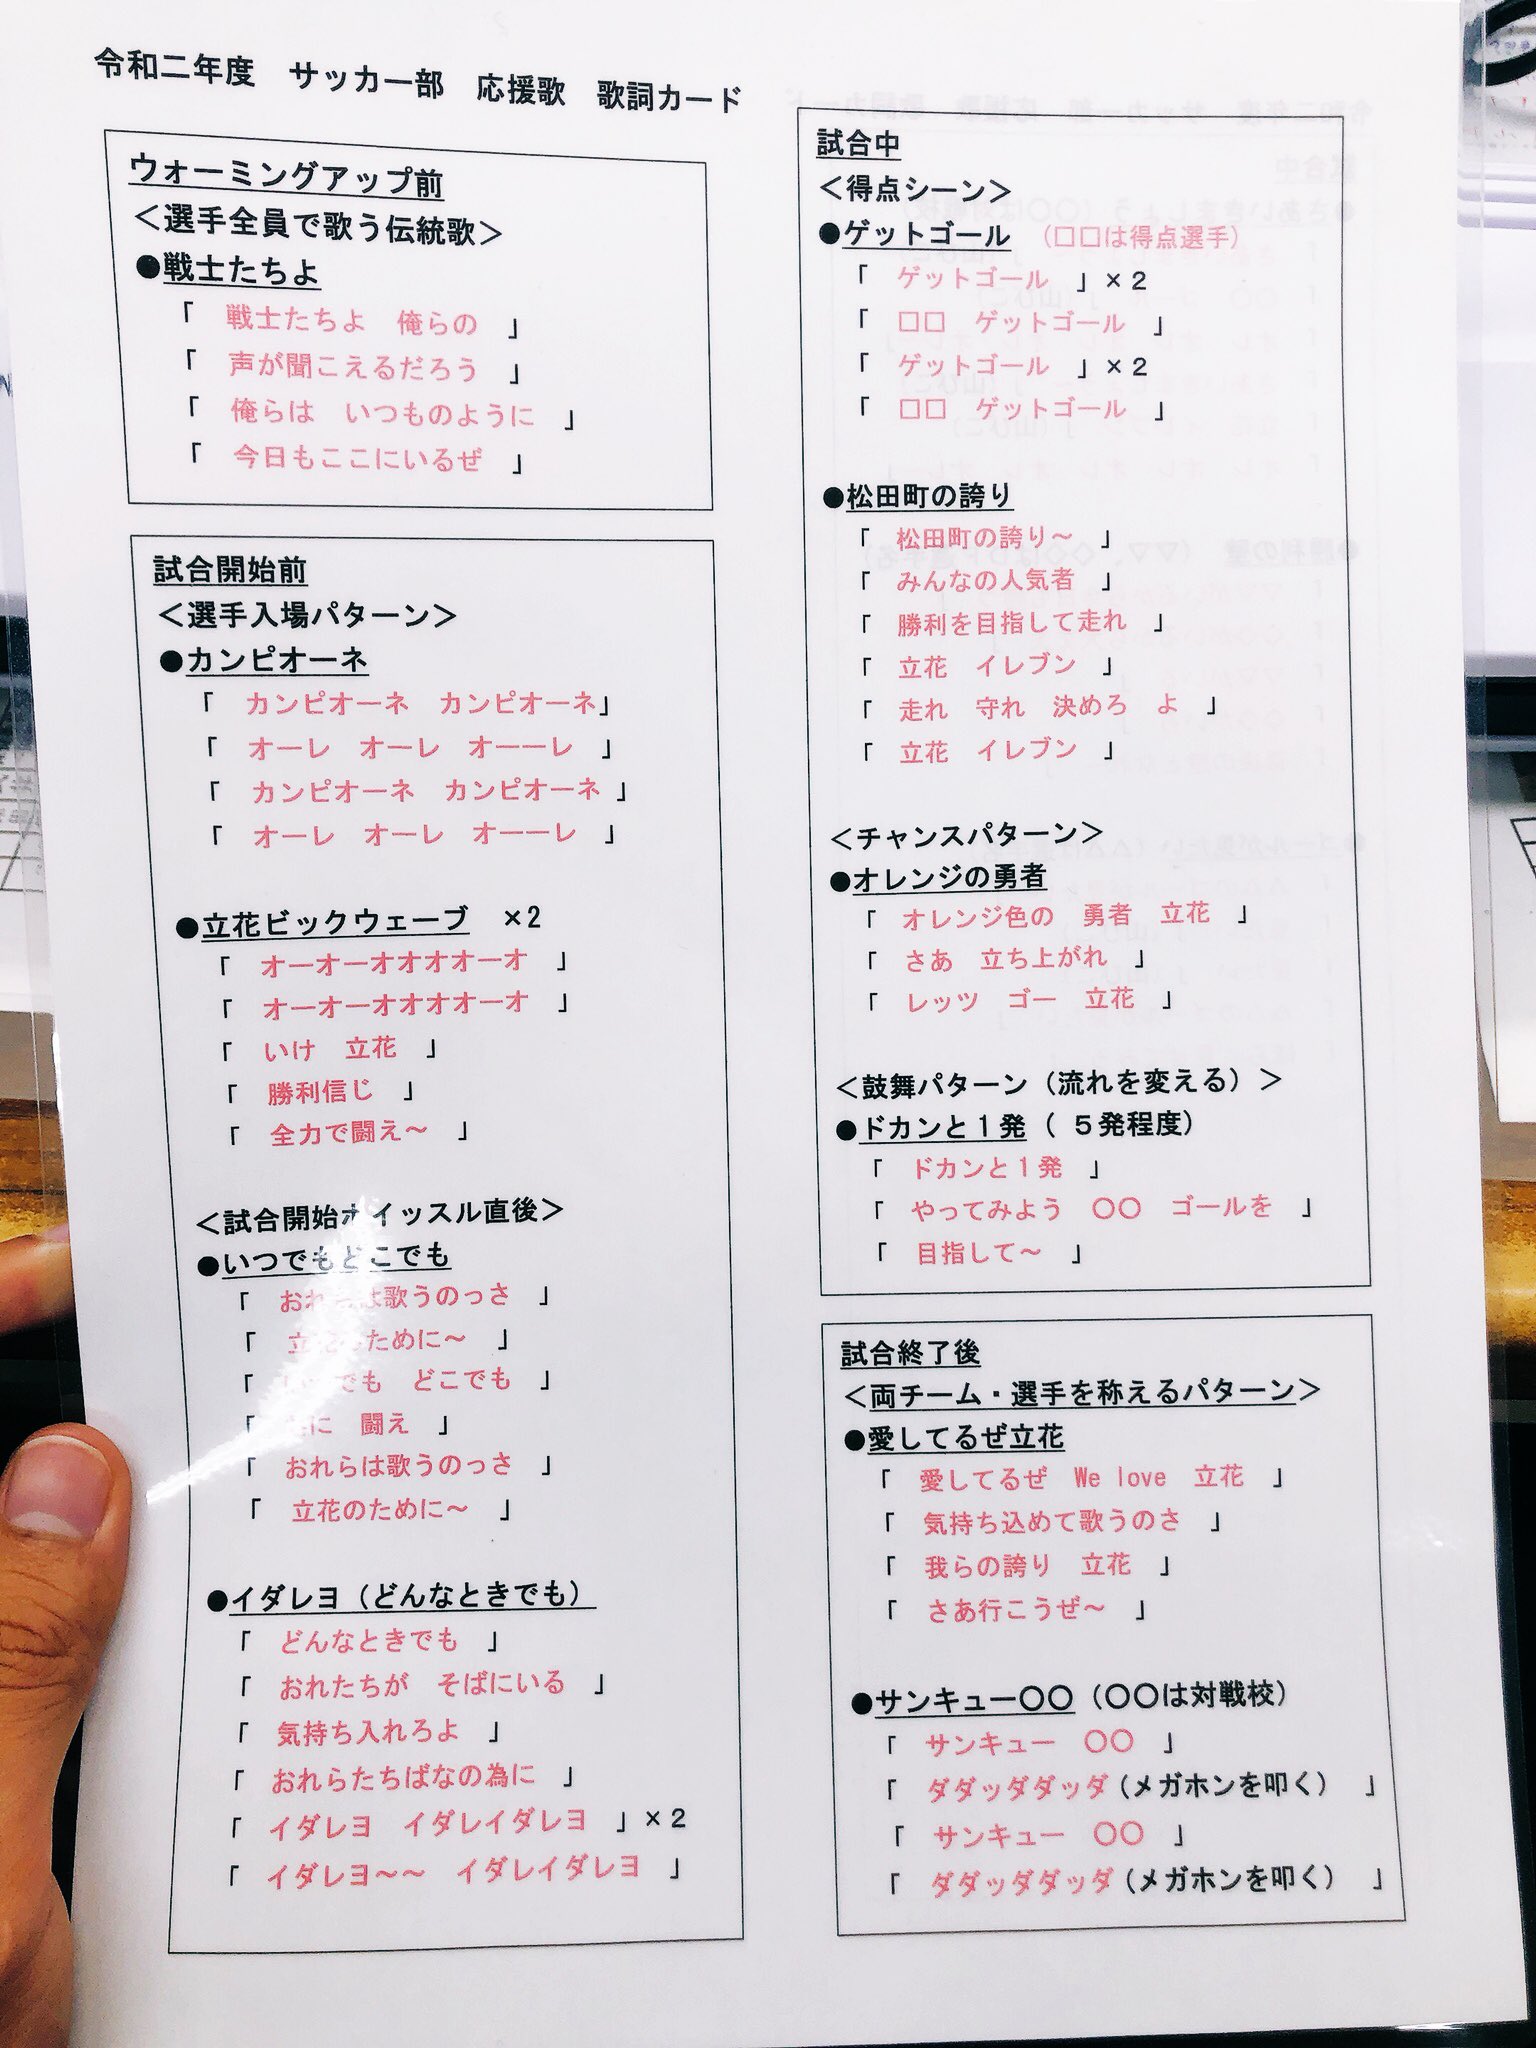 令和二年度　サッカー部　応援歌　歌詞カード
ウォーミングアップ前
＜選手全員で歌う伝統歌＞
●戦士たちよ
「　戦士たちよ　俺らの　」
「　声が聞こえるだろう　」
「　俺らは　いつものように　」
「　今日もここにいるぜ　」
試合開始前
＜選手入場パターン＞
●カンピオーネ
「　カンピオーネ　カンピオーネ」
「　オーレ　オーレ　オーーレ　」
「　カンピオーネ　カンピオーネ　」
「　オーレ　オーレ　オーーレ　」
●立花ビックウェーブ　×2
「　オーオーオオオオーオ　」
「　オーオーオオオオーオ　」
「　いけ　立花　」
「　勝利信じ　」
「　全力で闘え～　」
＜試合開始ホイッスル直後＞
●いつでもどこでも
「　おれらは歌うのっさ　」
「　立花のために～　」
「　でも　どこでも　」
「　に　闘え　」
「　おれらは歌うのっさ　」
「　立花のために～　」
●イダレヨ（どんなときでも）
「　どんなときでも　」
「　おれたちが　そばにいる　」
「　気持ち入れろよ　」
「　おれらたちばなの為に　」
「　イダレヨ　イダレイダレヨ　」×2
「　イダレヨ～～　イダレイダレヨ　」
試合中
＜得点シーン＞
●ゲットゴール　（□□は得点選手）
「　ゲットゴール　」×2
「　□□　ゲットゴール　」
「　ゲットゴール　」×2
「　□□　ゲットゴール　」
●松田町の誇り
「　松田町の誇り～　」
「　みんなの人気者　」
「　勝利を目指して走れ　」
「　立花　イレブン　」
「　走れ　守れ　決めろ　よ　」
「　立花　イレブン　」
＜チャンスパターン＞
●オレンジの勇者
「　オレンジ色の　勇者　立花　」
「　さあ　立ち上がれ　」
「　レッツ　ゴー　立花　」
＜鼓舞パターン（流れを変える）＞
●ドカンと１発（５発程度）
「　ドカンと１発　」
「　やってみよう　〇〇　ゴールを　」
「　目指して～　」
試合終了後
＜両チーム・選手を称えるパターン＞
●愛してるぜ立花
「　愛してるぜ　We love　立花　」
「　気持ち込めて歌うのさ　」
「　我らの誇り　立花　」
「　さあ行こうぜ～　」
●サンキュー〇〇（〇〇は対戦校）
「　サンキュー　〇〇　」
「　ダダッダダッダ（メガホンを叩く）　」
「　サンキュー　〇〇　」
「　ダダッダダッダ（メガホンを叩く）　」